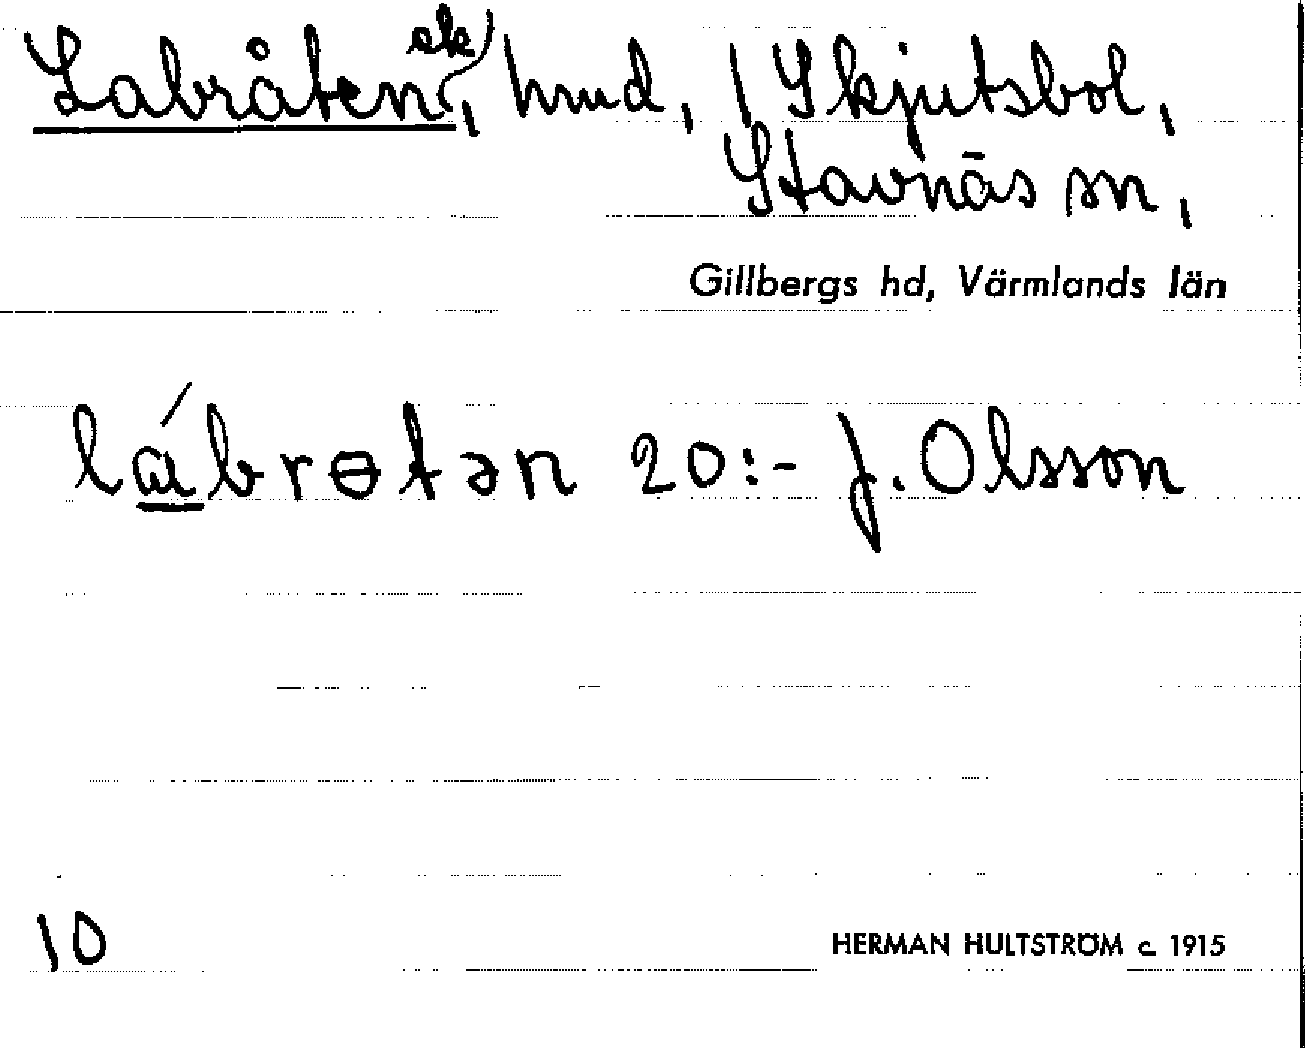 Labråten ek, hmd, / Skjutsbol,
Stavnäs sn,
Gillbergs hd, Värmlands län
lábrɵtən 20:- J. Olsson
10
HERMAN HULTSTRÖM c. 1915